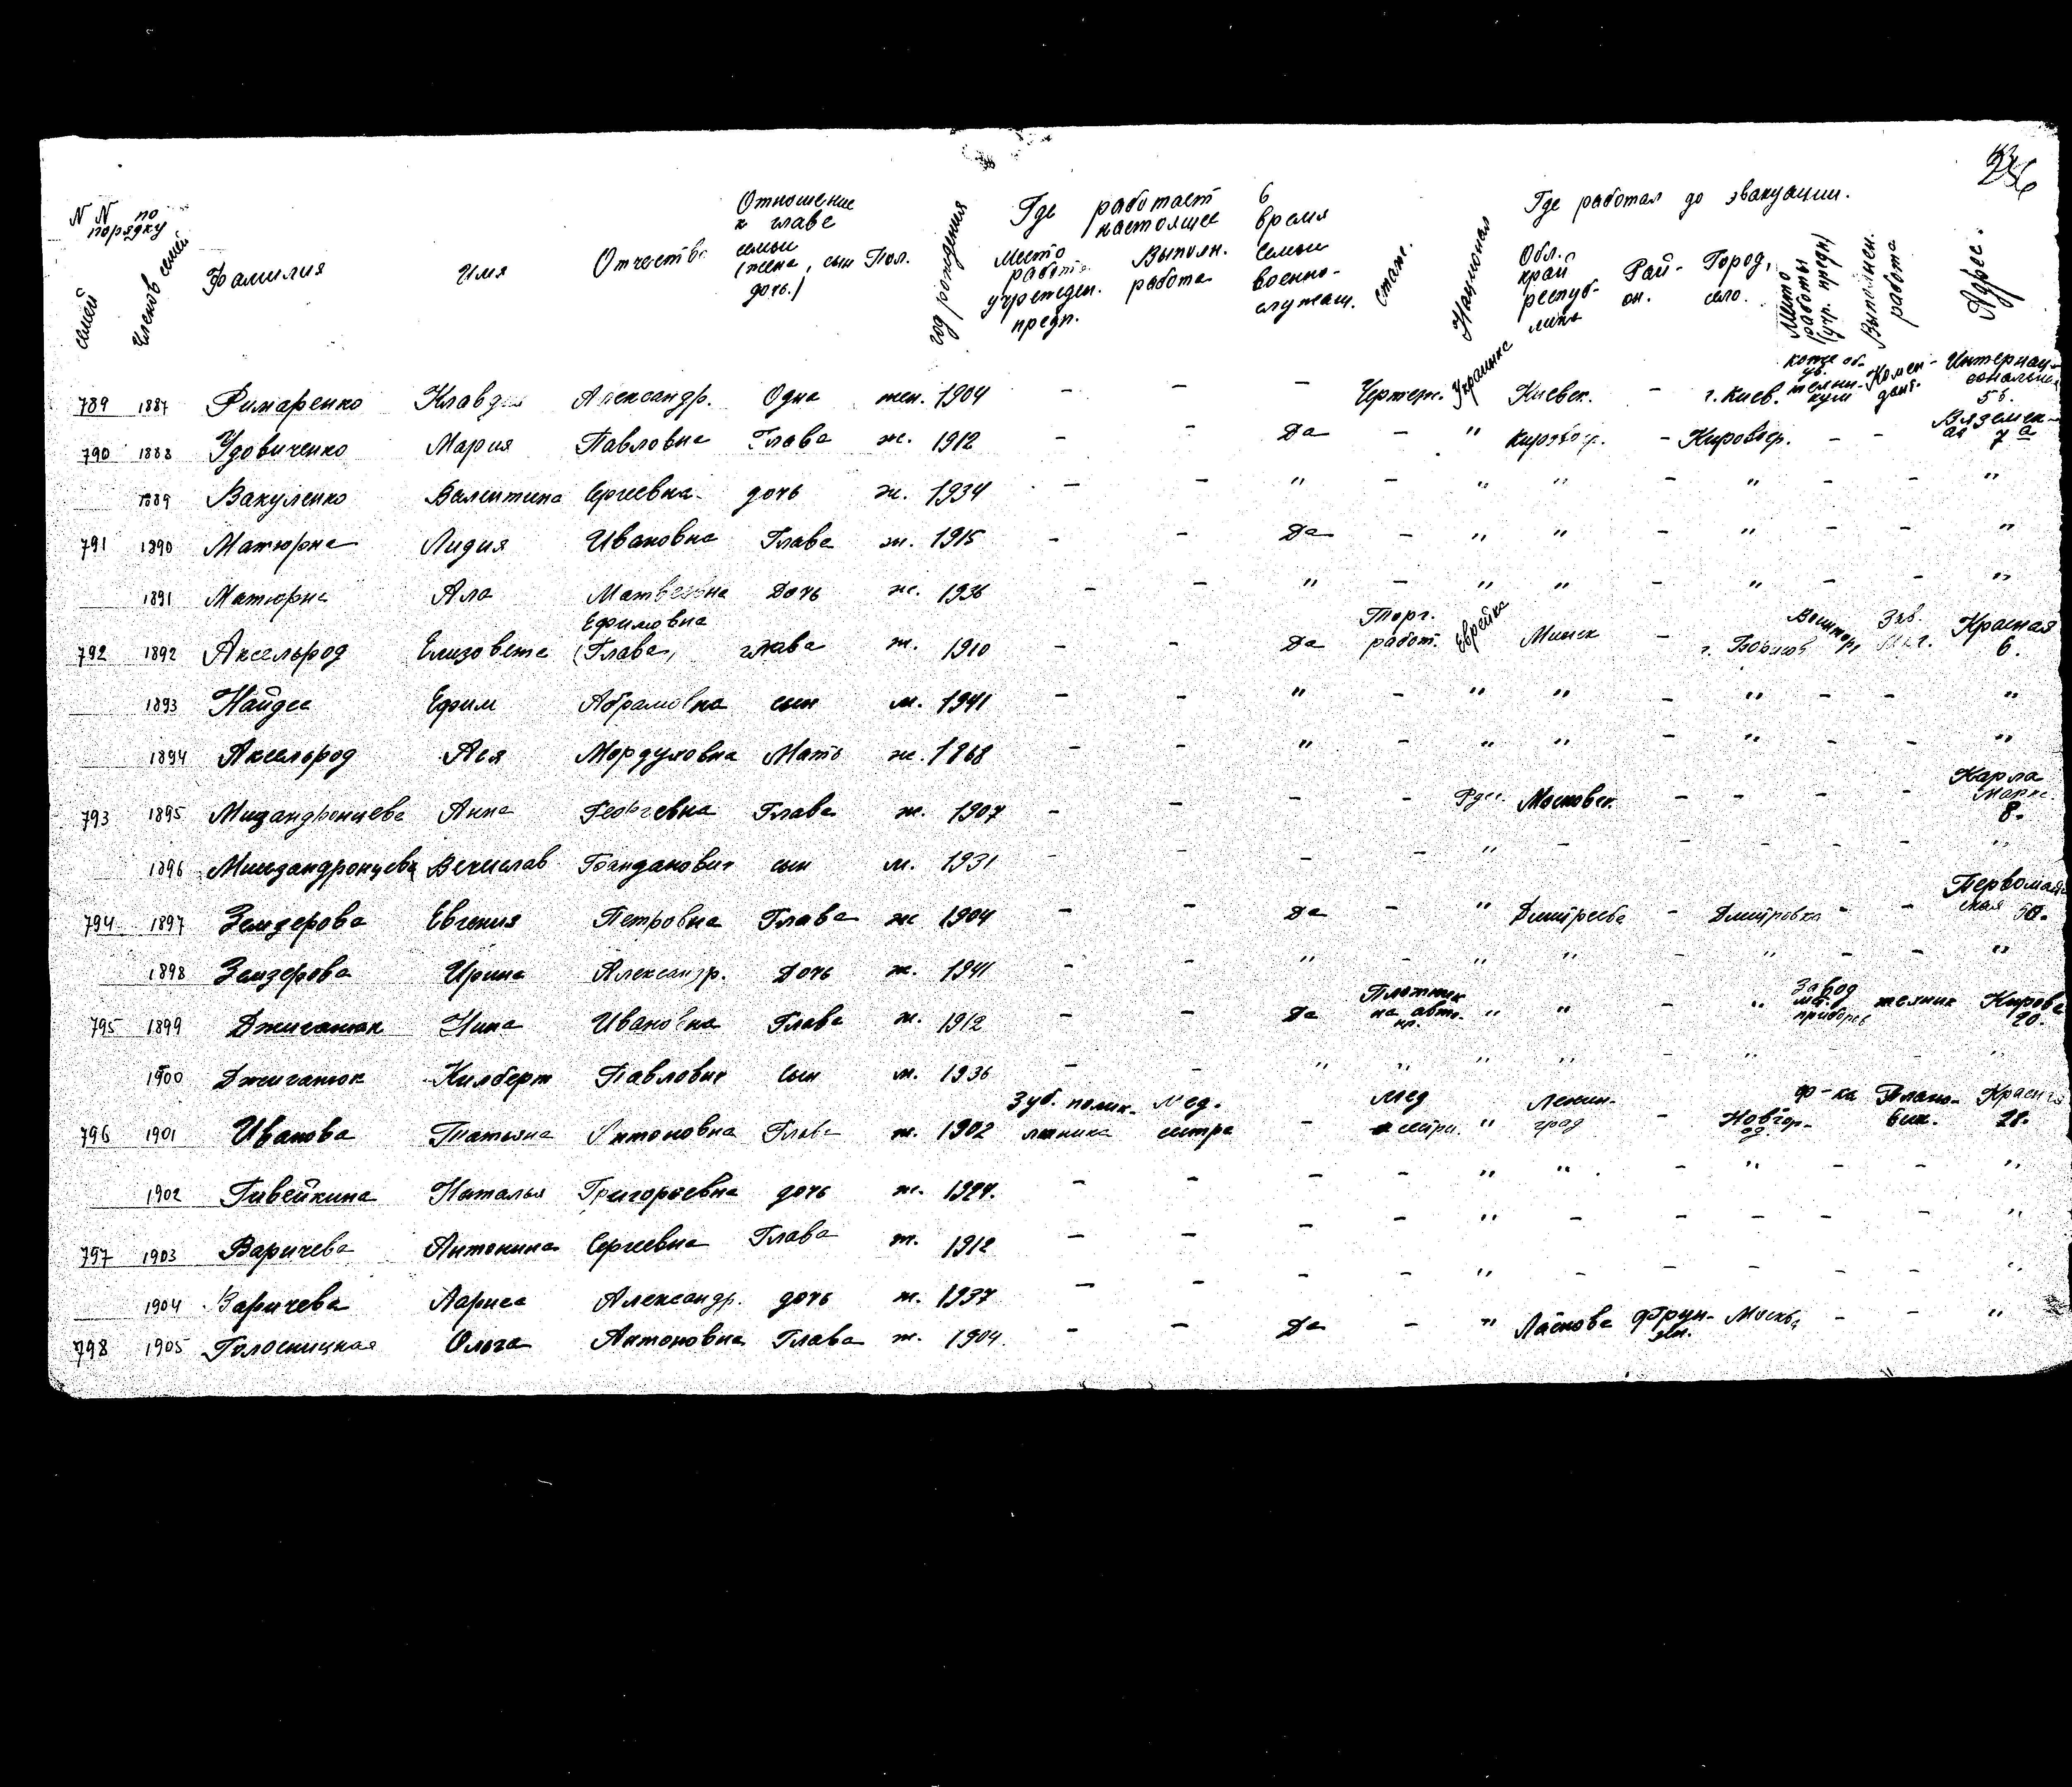 256
N N по порядку
семей
членов семей
Фамилия
Имя
Отчество
Отношение к главе семьи (жена, сын дочь.)
Пол.
год рождения
Где работает в настоящее время
Место работы учрежден. предп.
Выполн. работа
Семьи военно-служащ.
стаж.
Национал
Где работал до эвакуации.
Обл. край респуб-лика
Рай-он.
Город, село.
Место работы (учр. предп)
Выполнен. работа
Адрес.
789 1887 Римаренко Клавдия Александр. Одна жен. 1904 - - - Чертеж. Украинка Киевск. - г. Киев. техни-кум Комен-дант. Интернац-сональн 58.
790 1888 Удовиченко Мария Павловна Глава ж. 1912 - - Да - " Кировогр. - Кировогр. - - Вяземск-ая 7 а
1889 Вакуленко Валентина Сергеевна дочь ж. 1934 - - " - " " " - - "
791 1890 Матюрна Лидия Ивановна Глава ж. 1915 - - Да - " " - " - - "
1891 Матюрна Ала Матвеевна Дочь ж. 1936 - - " - " " - " - - "
792 1892 Аксельрод Елизовета Ефимовна (Глава) глава ж. 1910 - - Да Торг. работ. Еврейка Минск - г. Борисов Воинторг Зав. Маг. Красная 6.
1893 Найдес Ефим Абрамовна сын м. 1941 - - " - " " - " - - "
1894 Аксельрод Ася Мордуховна Мать ж. 1868 - - " - " " - " - - "
793 1895 Мизандронцева Анна Георгевна Глава ж. 1907 - - - - Рус. Московск. - - - - Карла Маркс. 8.
1896 Миизандронцева Вечислав Богданович сын м. 1931 - - - - " - - - - - "
794 1897 Земзерова Евгения Петровна Глава ж 1904 - - Да - " Дмитреева - Дмитровка - - Первомай-ская 50.
1898 Земзерова Ирина Александр. Дочь ж. 1941 - - " - " " - " - - "
795 1899 Джиганюк Нина Ивановна Глава ж. 1912 - - Да Плотник на авто. " " - " Завод мет. приборов техник Кирова 20.
1900 Джиганюк Килберт Павлович Сын м. 1936 - - " " " " - " - - "
796 1901 Иванова Татьяна Антоновна Глава ж. 1902 Зуб. полик-линика Мед. сестра - мед сестра. " Ленин-град - Новгор-од. ф-ка Плано-вик. Красная 28.
1902 Гивейкина Наталья Григорьевна дочь ж. 1927. - - - - " " - " - - "
797 1903 Варичева Антонина Сергеевна Глава ж. 1912 - - - - " - - - - - "
1904 Варичева Лариса Александр. дочь ж. 1937 - - - - " - - - - - "
798 1905 Голосницкая Ольга Антоновна Глава ж. 1904. - - Да - " Ласкова Фрун-зен. Москва - - "